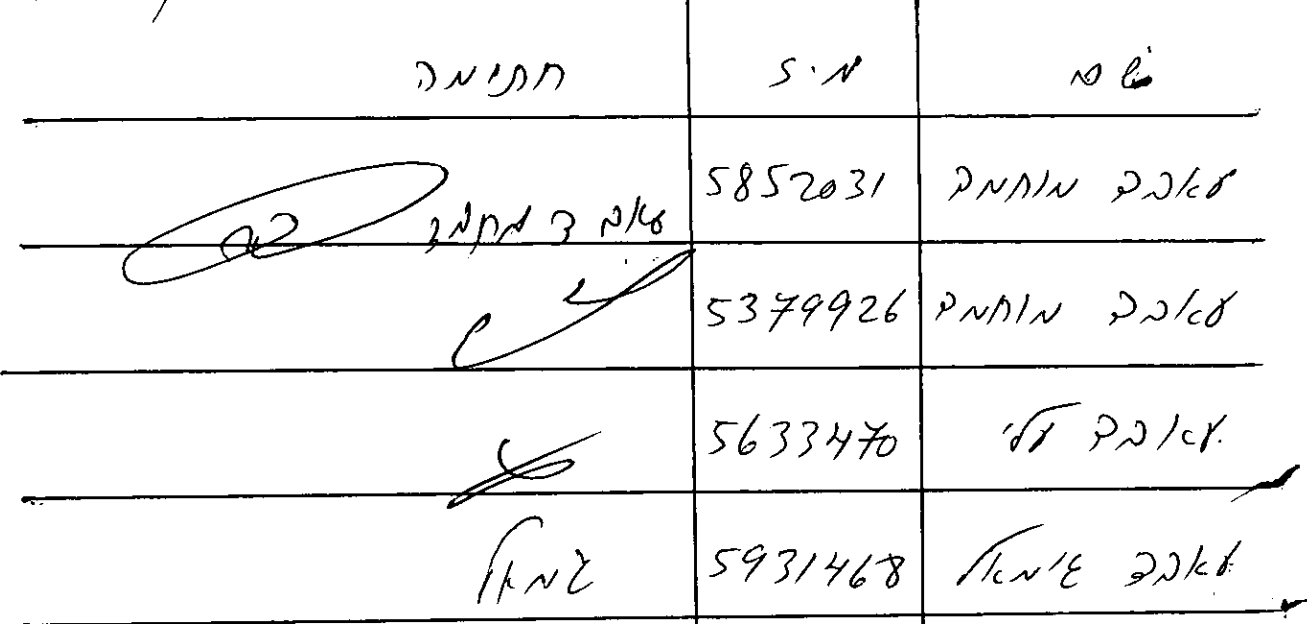 שם מ.ז חתימה
עאבד מוחמד 5852031 עאבד מחמד
עאבד מוחמד 5379926
עאבד עלי 5633470
עאבד ג'מאל 5931468 גמאל